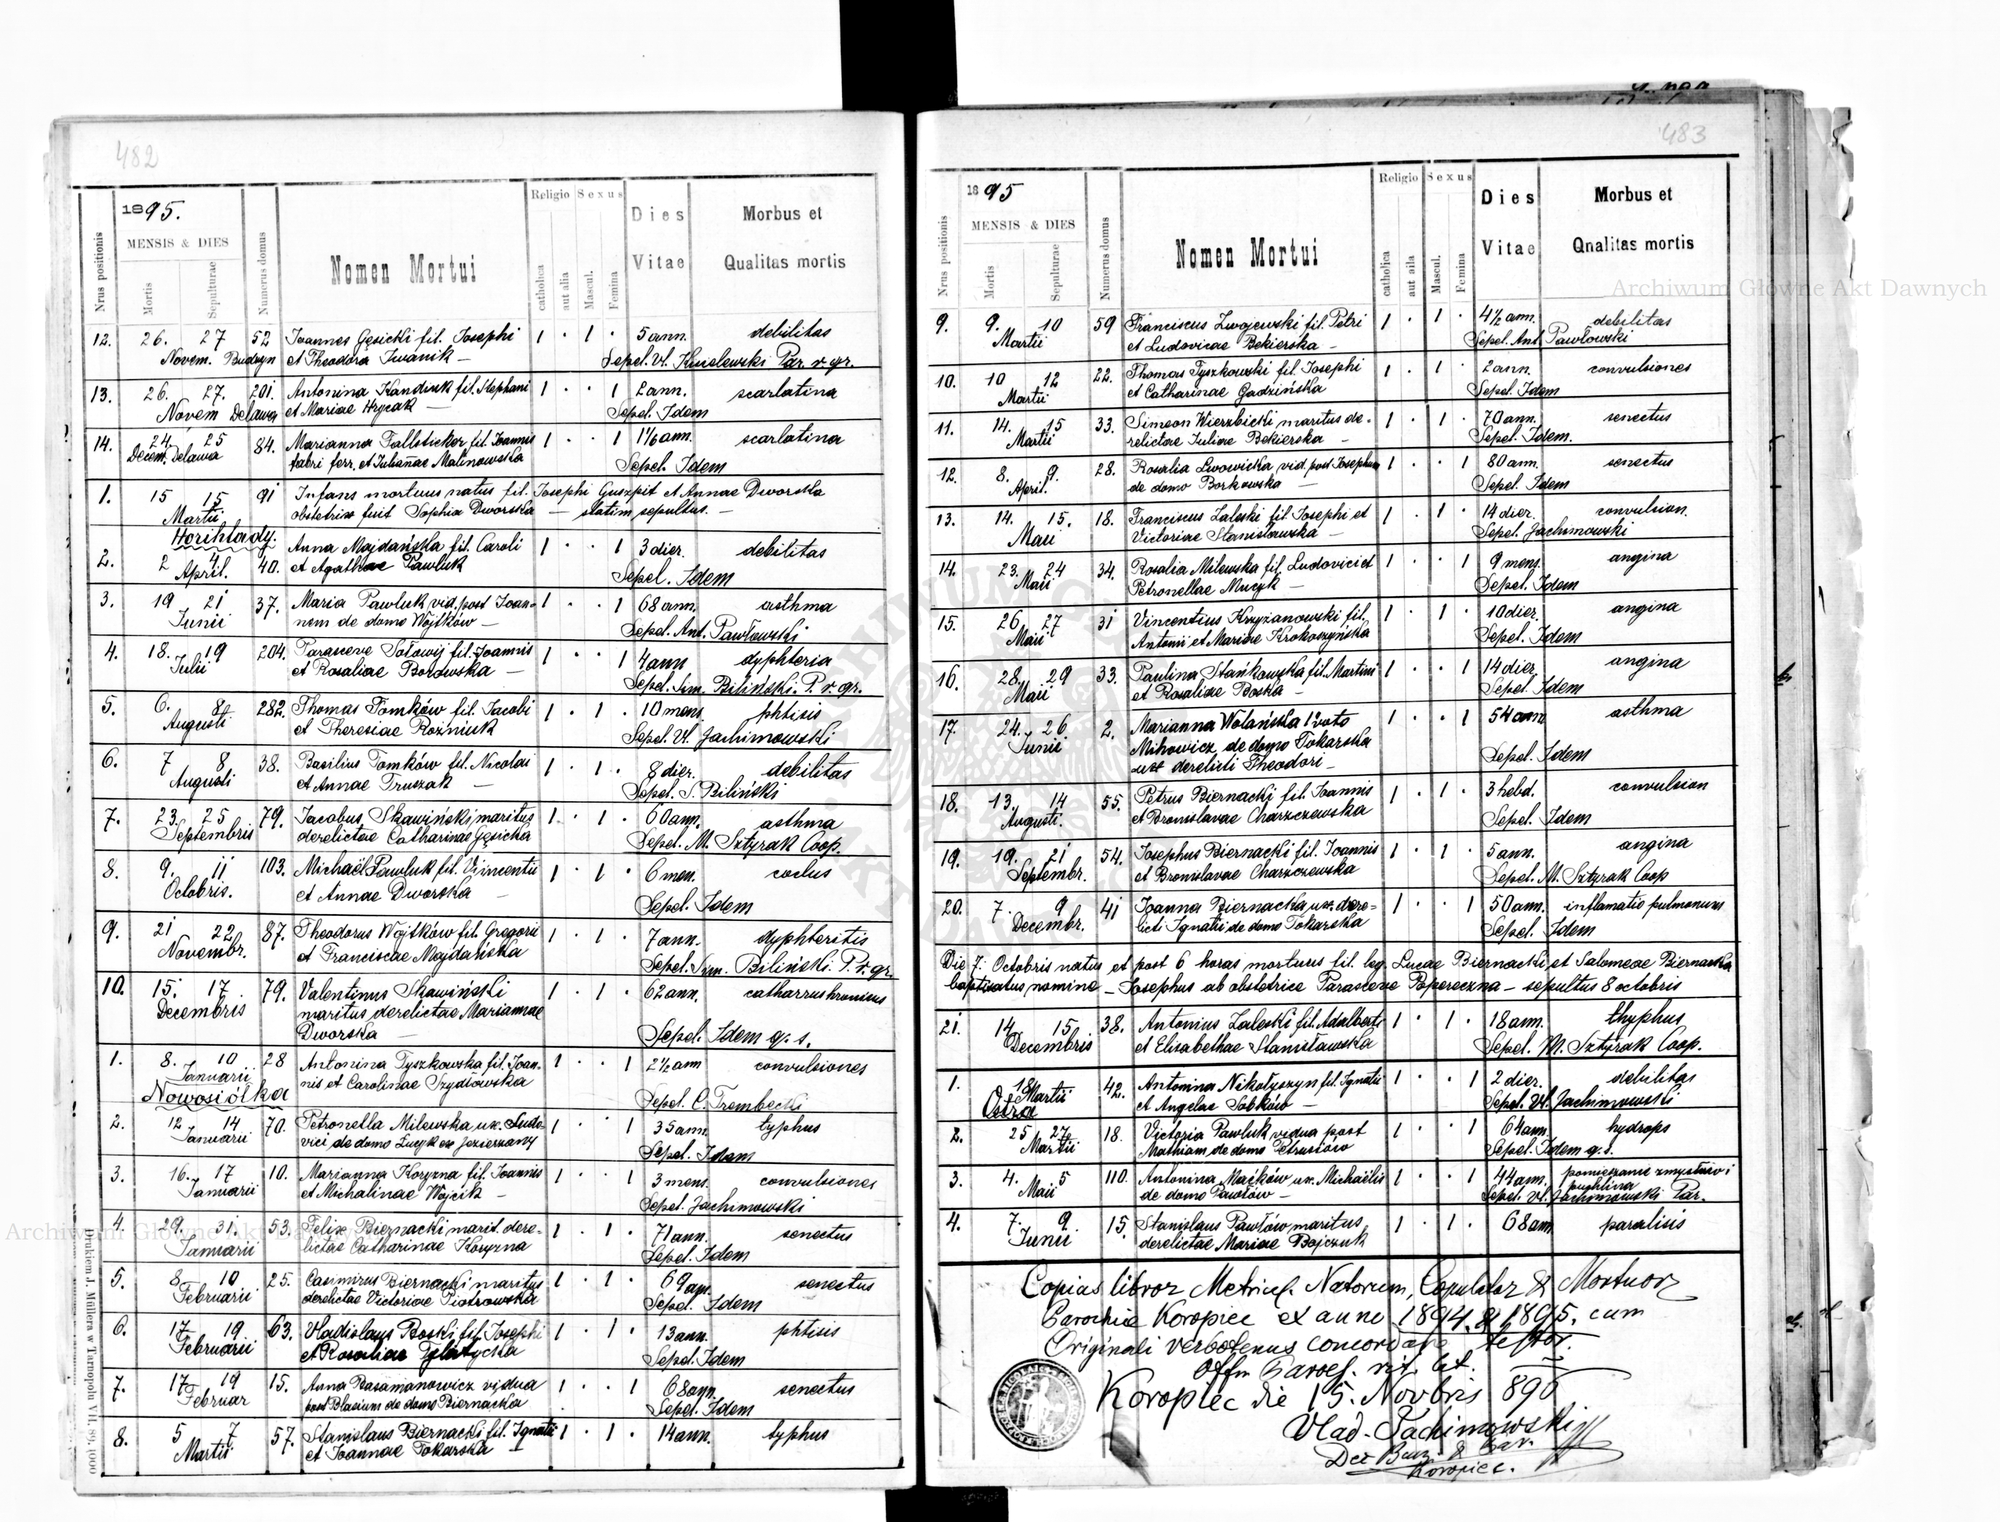 482
1895.
Nrus positionis
MENSIS & DIES
Mortis
Sepulturae
Numerus domus
Nomen Mortui
Religio
catholica
aut alia
Sexus
Mascul.
Femina
Dies Vitae
Morbus et
Qualitas mortis
12. 26. 27 52 Joannes Gęsicki fil. Josephi 1 · 1 · 5 ann. debilitas
Novem. et Theodora Iwanik — Sepel. Vl. Par. r. gr.
13. 26. 27. 201. Antonina fil. Stephani 1 · · 1 2 ann. scarlatina
Novem Delawa et Mariae Hrycak — Sepel. Idem
14. 24. 25 84. Marianna fil. Joannis 1 · · 1 1 1/6 ann. scarlatina
Decem. Delawa fabri ferr. et Julianae Malinowska Sepel. Idem
1. 15 15 91 Infans mortuus natus fil. Josephi Guszpit et Annae Dworska
Martii obstetrix fuit Sophia Dworska — statim sepultus. —
Horihlady.
2. 2 4. 40. Anna Majdańska fil. Caroli 1 · · 1 3 dier. debilitas
April. et Agathae Pawluk Sepel. Idem
3. 19 21 37. Maria Pawluk vid. post Joan- 1 · · 1 68 ann. asthma
Junii nem de domo Wojtków — Sepel. Ant. Pawłowski
4. 18. 19 204. Parasceve Sołowij fil. Joannis 1 · · 1 4 ann dyphteria
Julii et Rosaliae — Sepel. Sim. Biliński. P. r. gr.
5. 6. 8. 282. Thomas Tomków fil. Jacobi 1 · 1 · 10 mens. phtisis
Augusti et Theresiae Rożniuk Sepel. Vl. Jachimowski
6. 7 8 38. Basilius Tomków fil. Nicolai 1 · 1 · 8 dier. debilitas
Augusti et Annae Truszak — Sepel. S. Biliński
7. 23. 25 79. Jacobus Skawiński maritus 1 · 1 · 60 ann. asthma
Septembris derelictae Catharinae Gęsicka Sepel. M. Sztyrak Coop.
8. 9. 11 103. Michaël Pawluk fil. Vincentii 1 · 1 · 6 men. coclus
Octobris. et Annae Dworska — Sepel. Idem
9. 21 22. 87. Theodorus Wojtków fil. Gregorii 1 · 1 · 7 ann. dyphteritis
Novembr. et Franciscae Majdańska Sepel. Sim. Biliński. P. r. gr.
10. 15. 17 79. Valentinus Skawiński 1 · 1 · 62 ann.
Decembris maritus derelictae Mariannae
Dworska — Sepel. Idem q. s.
1. 8. 10 28 Antonina Tyszkowska fil. Joan- 1 · · 1 2 1/2 ann convulsiones
Januarii nis et Carolinae Szydłowska
Nowosiółka Sepel. C. Trembecki
2. 12 14 70. Petronella Milewska ux. Ludo- 1 · · 1 35 ann. typhus
Januarii vici de domo Sepel. Idem
3. 16. 17 10. Marianna Koryzna fil. Joannis 1 · · 1 3 mens. convulsiones
Januarii et Michalinae Wojcik — Sepel. Jachimowski
4. 29. 31. 53. Felix Biernacki marit. dere- 1 · 1 · 71 ann. senectus
Januarii lictae Catharinae Koryzna Sepel. Idem
5. 8 10 25. Casimirus Biernacki maritus 1 · 1 · 69 ann. senectus
Februarii derelictae Victoriae Piotrowska Sepel. Idem
6. 17 19 63. Vladislaus Boski fil. Josephi 1 · 1 · 13 ann. phtisis
Februarii et Rosaliae Sepel. Idem
7. 17 19 15. Anna Basamanowicz vidua 1 · · 1 68 ann. senectus
Februar post Blasium de domo Biernacka Sepel. Idem
8. 5 7 57. Stanislaus Biernacki fil. Ignatii 1 · 1 · 14 ann. typhus
Martii et Joannae Tokarska
Drukiem J. Müllera w Tarnopolu VII. 89. 1000
483
1895
Nrus positionis
MENSIS & DIES
Mortis
Sepulturae
Numerus domus
Nomen Mortui
Religio
catholica
aut aila
Sexus
Mascul.
Femina
Dies
Vitae
Morbus et
Qnalitas mortis
9. 9. 10 59 Franciscus Zwojewski fil. Petri 1 · 1 · 4 1/2 ann. debilitas
Martii et Ludovicae Bekierska — Sepel. Ant. Pawłowski
10. 10 12 22. Thomas Tyszkowski fil. Josephi 1 · 1 · 2 ann. convulsiones
Martii et Catharinae Gadzińska Sepel. Idem
11. 14. 15 33. Simeon Wierzbicki maritus de- 1 · 1 · 70 ann. senectus
Martii relictae Juliae Bekierska — Sepel. Idem.
12. 8. 9. 28. Rosalia Lwowicka vid. post Josephum 1 · · 1 80 ann. senectus
April. de domo Borkowska — Sepel. Idem
13. 14. 15. 18. Franciscus Zaleski fil. Josephi et 1 · 1 · 14 dier. convulsion.
Maii Victoriae Stanisławska — Sepel. Jachimowski
14. 23. 24 34. Rosalia Milewska fil. Ludovici et 1 · · 1 9 mens. angina
Maii Petronellae — Sepel. Idem
15. 26. 27 31 Vincentius Krzyżanowski fil. 1 · 1 · 10 dier. angina
Maii Antonii et Mariae Krokoszyńska Sepel. Idem
16. 28. 29 33. Paulina Stańkowska fil. Martini 1 · · 1 14 dier. angina
Maii et Rosaliae Boska — Sepel. Idem
17. 24. 26. 2. Marianna Wolańska 1 voto 1 · · 1 54 ann. asthma
Junii Mihowicz de domo Tokarska
uxor derelicti Theodori — Sepel. Idem
18. 13. 14 55. Petrus Biernacki fil. Joannis 1 · 1 · 3 hebd. convulsion
Augusti. et Bronislavae Charzczewska Sepel. Idem
19. 19. 21 54. Josephus Biernacki fil. Joannis 1 · 1 · 5 ann. angina
Septembr. et Bronislavae Charzczewska Sepel. M. Sztyrak Coop
20. 7. 9 41 Joanna Biernacka ux. dere- 1 · · 1 50 ann. inflamatio pulmonum
Decembr. licti Ignatii de domo Tokarska Sepel. Idem
Die 7. Octobris natus et post 6 horas mortuus fil. leg. Lucae Biernacki et Salomeae Biernacka
baptisatus nomine — Josephus ab obstetrice Parasceve Popereczna — sepultus 8 octobris
21. 14. 15. 38. Antonius Zaleski fil. Adalberti 1 · 1 · 18 ann. thyphus
Decembris et Elisabethae Stanisławska Sepel. M. Sztyrak Coop.
1. 18 42. Antonina Nikołyszyn fil. Ignatii 1 · · 1 2 dier. debilitas
Martii et Angelae Sobków — Sepel. Vl. Jachimowski
Ostra
2. 25 27 18. Victoria Pawluk vidua post 1 · · 1 64 ann. hydrops
Martii Mathiam de domo Petrusiów Sepel. Idem q. s.
3. 4. 5 110. Antonina Maćków ux. Michaëlis 1 · · 1 44 ann. pomieszanie zmysłów i
Maii de domo Pawłów — puchlina
Sepel. Vl. Jachimowski Par.
4. 7. 9. 15. Stanislaus Pawłów maritus 1 · 1 · 68 ann paralisis
Junii derelictae Mariae Bojczuk
Copias libror Metrical. Natorum, Copulator & Mortuor
Parochia Koropiec ex anno 1894 & 1895. cum
Originali verbotenus concordare testor.
Offm Paroch. rit. lat.
Koropiec die 15. Novbris 896
Vlad. Jachimowski
Koropiec.
Archiwum Główne Akt Dawnych
Archiwum Główne Akt Dawnych